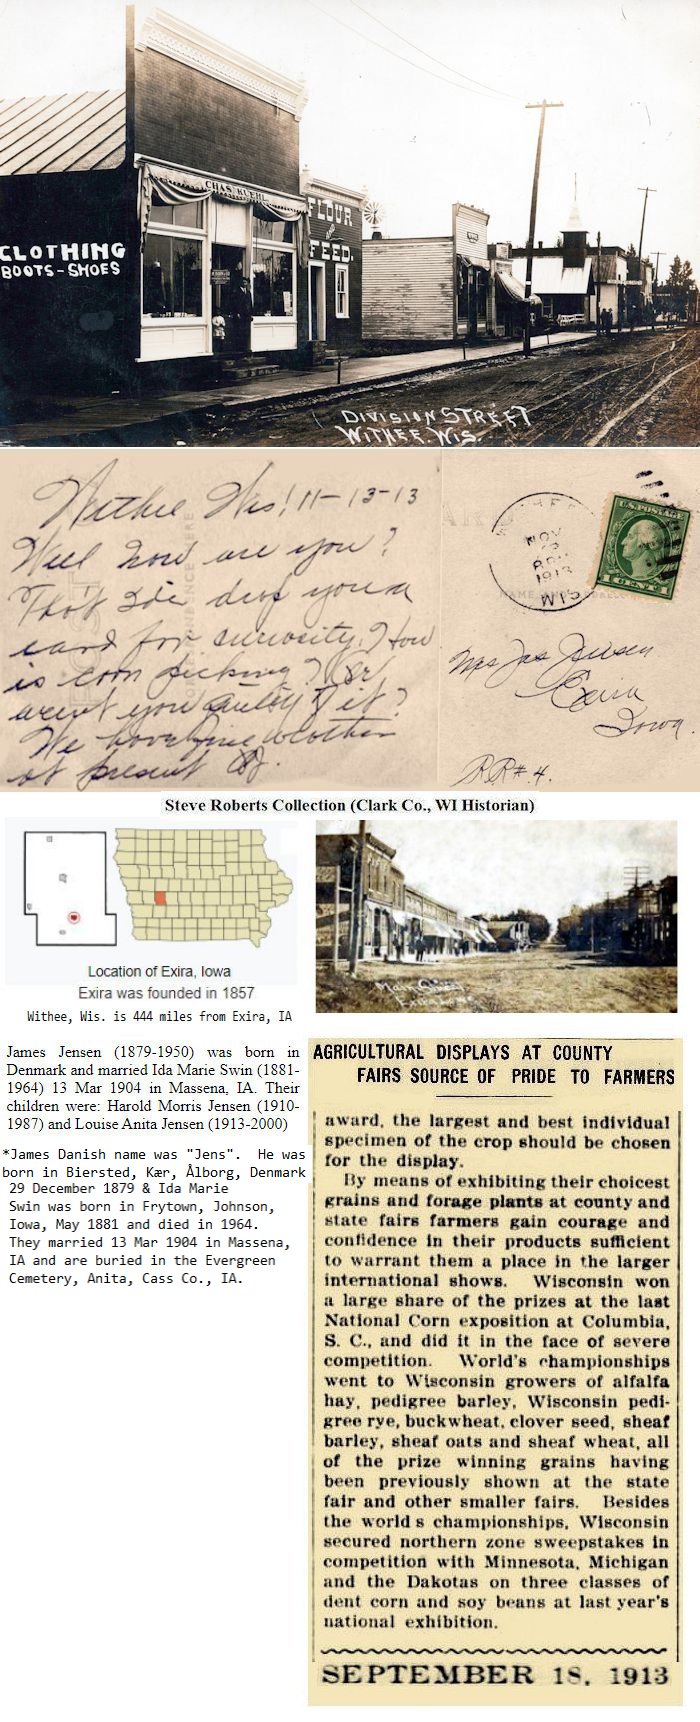 CHAS. KUEHL
FLOUR
AND
FEED.
CLOTHING
BOOTS-SHOES
DIVISION STREET
WITHEE. WIS.
Withee Wis! 11-13-13
Well how are you?
Tho't I'de drop you a
card for curiosity. How
is corn picking? Or
arent you at it?
We have fine weather
at present
NOV
1913
WIS
U.S. POSTAGE
1 CENT 1
Mrs Jas Jensen
Exira
Iowa.
RR#.4.
Steve Roberts Collection (Clark Co., WI Historian)
Location of Exira, Iowa
Exira was founded in 1857
Withee, Wis. is 444 miles from Exira, IA
Main Street
Exira Iowa
James Jensen (1879-1950) was born in
Denmark and married Ida Marie Swin (1881-
1964) 13 Mar 1904 in Massena, IA. Their
children were: Harold Morris Jensen (1910-
1987) and Louise Anita Jensen (1913-2000)
*James Danish name was "Jens". He was
born in Biersted, Kær, Ålborg, Denmark
29 December 1879 & Ida Marie
Swin was born in Frytown, Johnson,
Iowa, May 1881 and died in 1964.
They married 13 Mar 1904 in Massena,
IA and are buried in the Evergreen
Cemetery, Anita, Cass Co., IA.
AGRICULTURAL DISPLAYS AT COUNTY
FAIRS SOURCE OF PRIDE TO FARMERS
award, the largest and best individual
specimen of the crop should be chosen
for the display.
By means of exhibiting their choicest
grains and forage plants at county and
state fairs farmers gain courage and
confidence in their products sufficient
to warrant them a place in the larger
international shows. Wisconsin won
a large share of the prizes at the last
National Corn exposition at Columbia,
S. C., and did it in the face of severe
competition. World's championships
went to Wisconsin growers of alfalfa
hay, pedigree barley, Wisconsin pedi-
gree rye, buckwheat, clover seed, sheaf
barley, sheaf oats and sheaf wheat, all
of the prize winning grains having
been previously shown at the state
fair and other smaller fairs. Besides
the world s championships, Wisconsin
secured northern zone sweepstakes in
competition with Minnesota, Michigan
and the Dakotas on three classes of
dent corn and soy beans at last year's
national exhibition.
SEPTEMBER 18, 1913